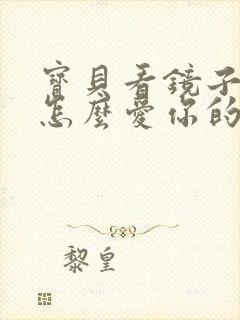 寶貝看鏡子
怎麼愛你的
黎皇